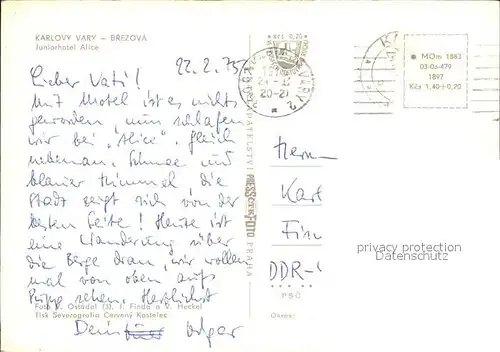 KARLOVY VARY – BŘEZOVÁ
Juniorhotel Alice
22.2.75
Lieber Vati!
Mit Motel ist es nichts
geworden, nun schlafen
wir bei "Alice" gleich
nebenan. Schnee und
blauer Himmel, die
Stadt zeigt sich von der
besten Seite! Heute ist
eine Wanderung über
die Berge dran, wir wollen
mal von oben aufs
Pupp sehen. Herzlichst
Dein
Foto V. Ostádal (3), J. Finda a V. Heckel
Tisk Severografia Červený Kostelec
VYDAVATELSTVÍ PRESSFOTO PRAHA
20-2
MOm 1883
03-06-479
1897
Kčs 1,40+0,20
Herrn
Karl
DDR-
PSČ
Okres:
privacy protection
Datenschutz